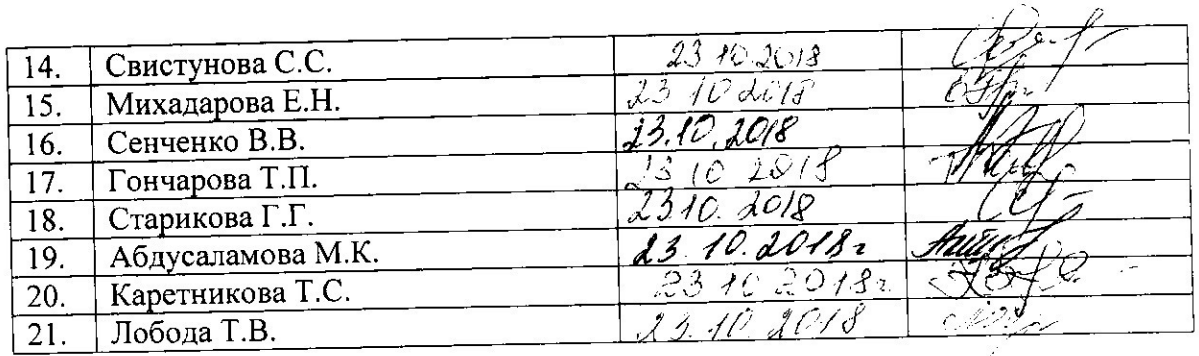 14. Свистунова С.С. 23 10.2018
15. Михадарова Е.Н. 23 10 2018
16. Сенченко В.В. 23.10.2018
17. Гончарова Т.П. 23 10 2018
18. Старикова Г.Г. 23 10. 2018
19. Абдусаламова М.К. 23.10.2018г
20. Каретникова Т.С. 23 10 2018г
21. Лобода Т.В. 23.10.2018